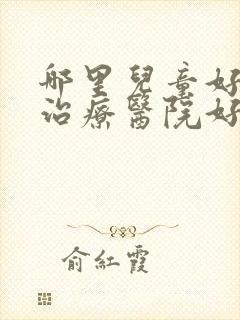 哪里兒童好
治療醫院好
俞紅霞